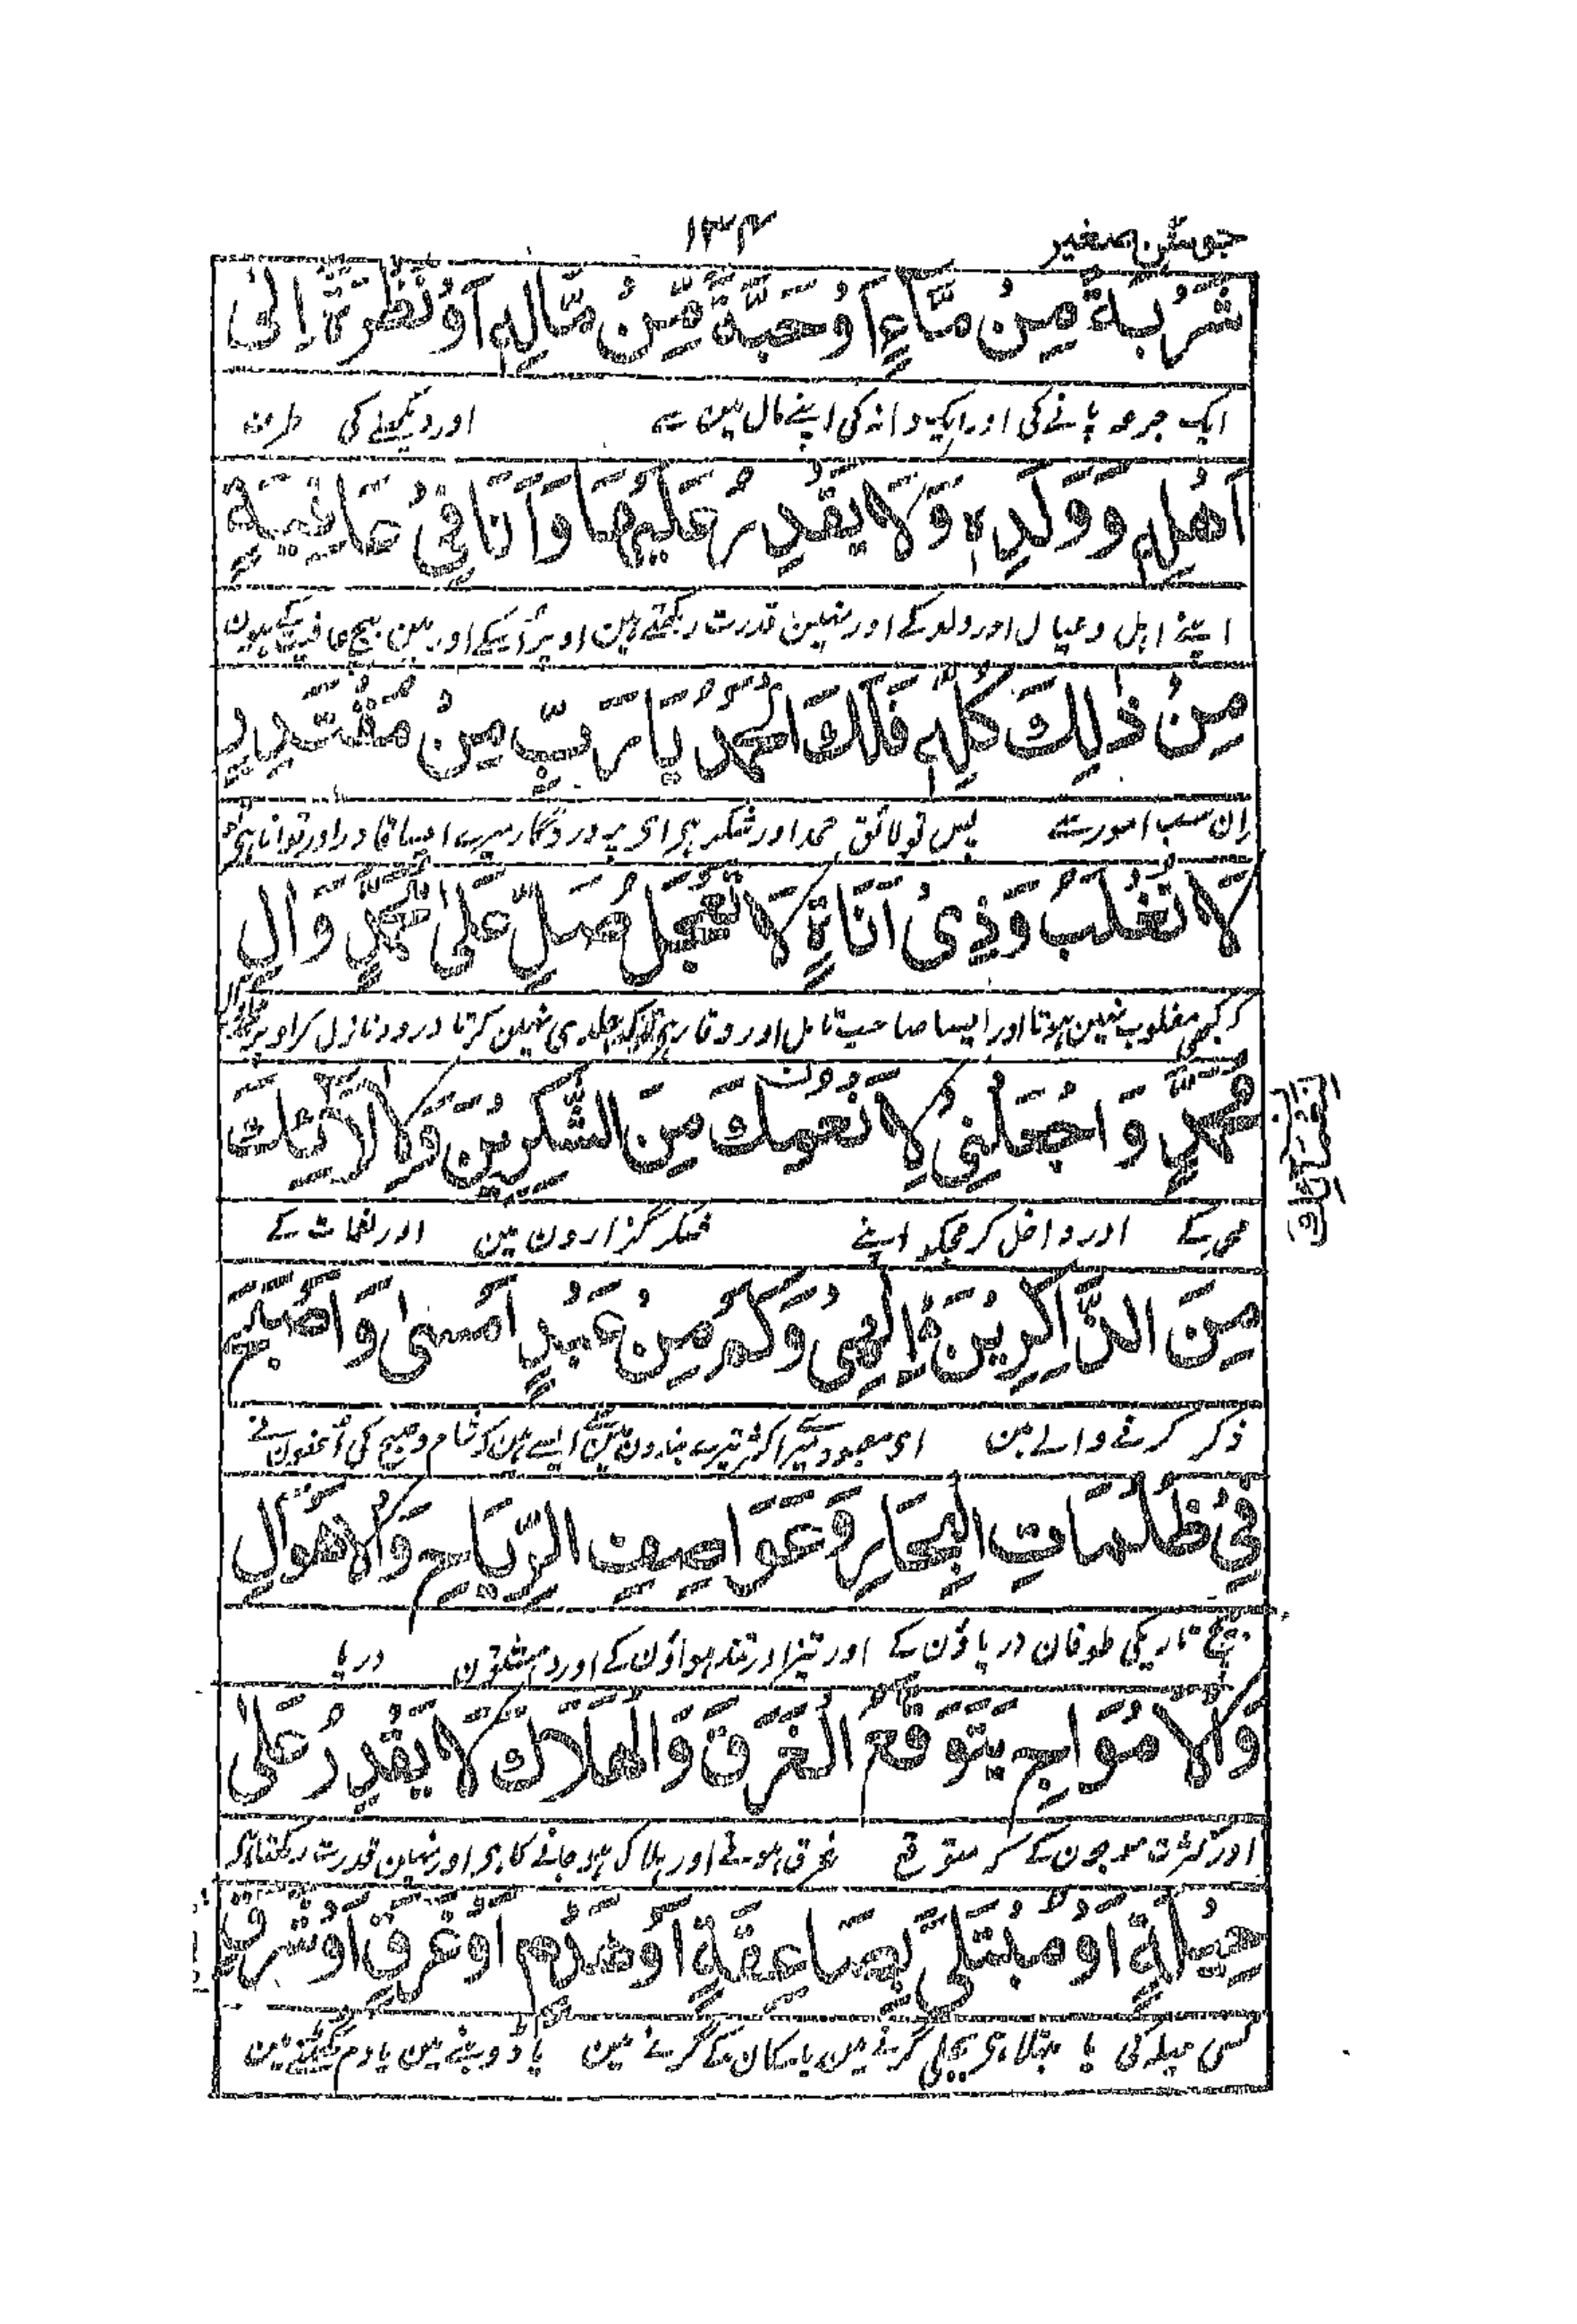 جوشن صغیر
۱۳۴
شَرْبَةً مِنْ مَّاءٍ اَوْ حَبَّةً مِّنْ مَّالِهٖ اَوْ نَظْرَةً اِلٰى
ایک جرعہ پانے کی اور ایک دانہ کی اپنے مال مین سے اور دیکھنے کی طرف
اَهْلِهٖ وَوَلَدِهٖ وَلَا يَقْدِرُ عَلَيْهَا وَاَنَا فِيْ عَافِيَةٍ
اپنے اہل و عیال اور ولد کے اور نہین قدرت رکھتے ہین اوپر اسکے اور مین بیچ عافیت کے ہون
مِنْ ذٰلِكَ كُلِّهٖ فَلَكَ الْحَمْدُ يَا رَبِّ مِنْ مُقْتَدِرٍ
ان سب امور سے پس تو لائق حمد اور شکر ہی ای پروردگار میرے ایسا قادر اور توانا ہی
لَا تُغْلَبُ وَذِيْ اَنَاةٍ لَا تَعْجَلُ صَلِّ عَلٰى مُحَمَّدٍ وَّاٰلِ
کہ کبھی مغلوب نہین ہوتا اور ایسا صاحب تامل اور وقار ہی کہ جلدی نہین کرتا درود نازل کر اوپر
مُحَمَّدٍ وَّاجْعَلْنِيْ لِاَنْعُمِكَ مِنَ الشّٰكِرِيْنَ وَلِاٰلَائِكَ
محمد کے اور داخل کر مجکو اپنے شکر گزارون مین اور نعمات کے
مِنَ الذَّاكِرِيْنَ اِلٰهِيْ وَكَمْ مِنْ عَبْدٍ اَمْسٰى وَاَصْبَحَ
ذکر کرنے والے مین ای معبود میرے اکثر تیرے بندون مین سے ایسے ہین کہ شام و صبح کی انھون نے
فِيْ ظُلُمَاتِ الْبِحَارِ وَعَوَاصِفِ الرِّيَاحِ وَالْاَهْوَالِ
بیچ تاریکی طوفان دریاؤن کے اور تیز اور تند ہواؤن کے اور دہشتون دریا
وَالْاَمْوَاجِ يَتَوَقَّعُ الْغَرَقَ وَالْهَلَاكَ لَا يَقْدِرُ عَلٰى
اور کثرت موجون کے کہ متوقع غرق ہونے اور ہلاک ہو جانے کا ہی اور نہین قدرت رکھتا ہی
حِيْلَةٍ اَوْ مُبْتَلًى بِصَاعِقَةٍ اَوْ هَدْمٍ اَوْ غَرَقٍ اَوْ شَرَقٍ
کسی حیلہ کی یا مبتلا ہی بجلی گرنے مین یا مکان کے گرنے مین یا ڈوبنے مین یا دم گھٹنے مین